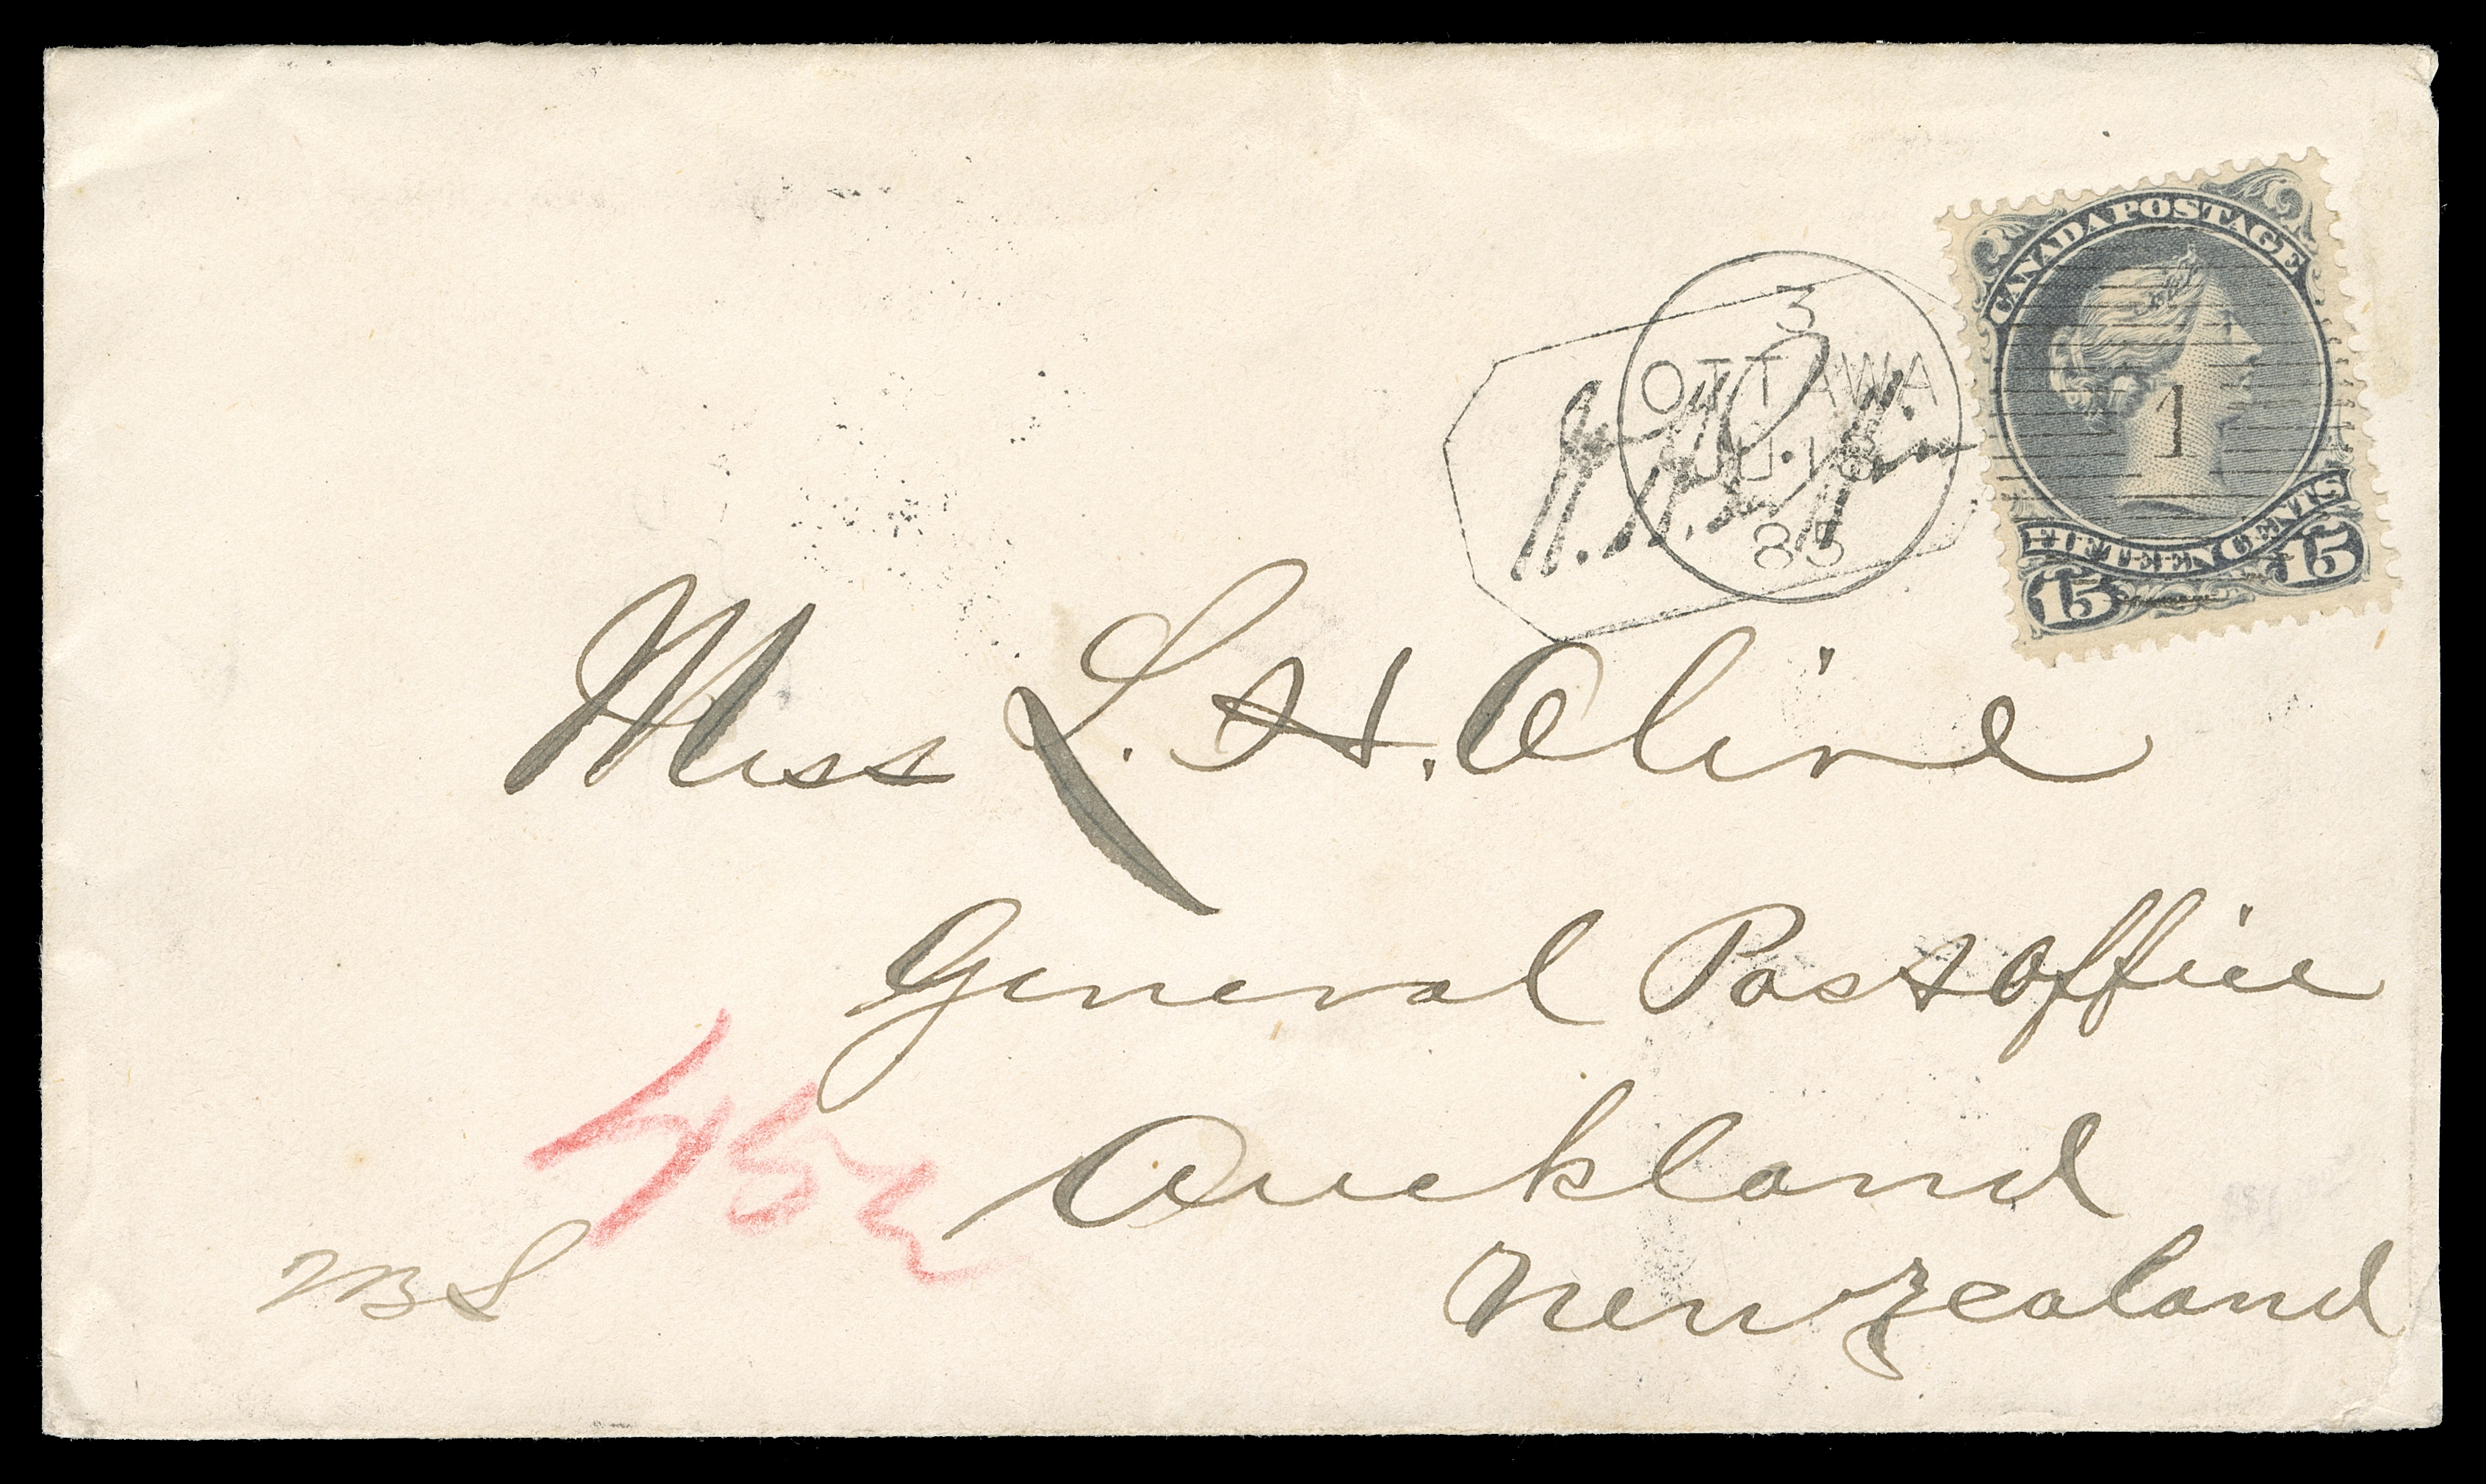 CANADA POSTAGE
1
FIFTEEN CENTS
15 15
3
OTTAWA
JU 18
85
Miss L. H. Oline
General Post office
Auckland
New Zealand